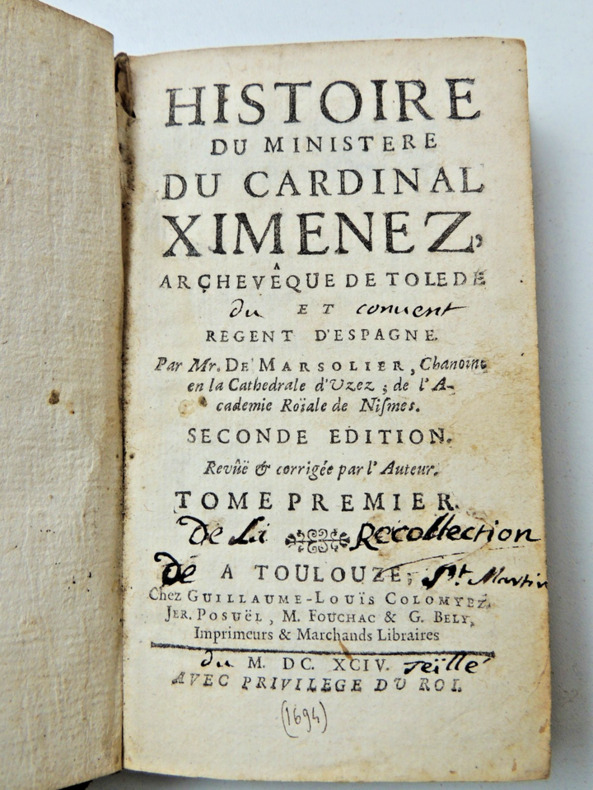 HISTOIRE
DU MINISTERE
DU CARDINAL
XIMENEZ,
ARCHEVÊQUE DE TOLEDE
du ET convent
REGENT D'ESPAGNE.
Par Mr. DE MARSOLIER, Chanoine
en la Cathedrale d'Uzez ; de l'A-
cademie Roïale de Nismes.
SECONDE EDITION.
Revûë & corrigée par l'Auteur.
TOME PREMIER.
De La Recollection
de A TOULOUZE, St. Martin
Chez GUILLAUME-LOUÏS COLOMYEZ,
JER. POSUËL, M. FOUCHAC & G. BELY,
Imprimeurs & Marchands Libraires
du M. DC. XCIV. Seillé
AVEC PRIVILEGE DU ROI.
(1694)